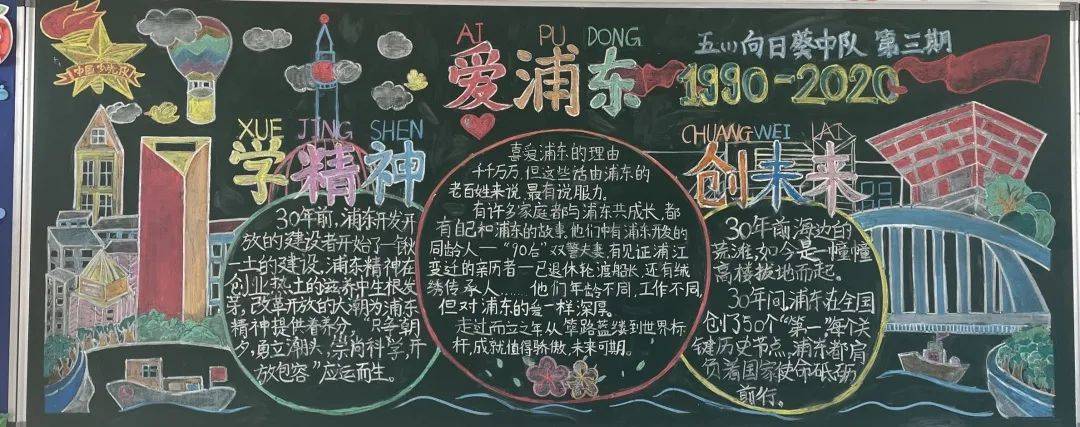 中国少先队
AI PU DONG
爱浦东
五(1)向日葵中队 第三期
1990-2020
XUE JING SHEN
学精神
30年前,浦东开发开
放的建设者开始了一锹
一土的建设,浦东精神在
创业热土的滋养中生根发
芽,改革开放的大潮为浦东
精神提供着养分,“只争朝
夕,勇立潮头,崇尚科学,开
放包容”应运而生。
喜爱浦东的理由
千千万万,但这些话由浦东的
老百姓来说,最有说服力。
有许多家庭都与浦东共成长,都
有自己和浦东的故事,他们中有浦东开发的
同龄人—“90后”双警夫妻,有见证浦江
变迁的亲历者—已退休轮渡船长,还有绒
绣传承人……他们年龄不同,工作不同,
但对浦东的爱一样深厚。
走过而立之年从筚路蓝缕到世界标
杆,成就值得骄傲,未来可期。
CHUANG WEI LAI
创未来
30年前海边的
荒滩,如今是一幢幢
高楼拔地而起。
30年间,浦东在全国
创了50个“第一”每个关
键历史节点,浦东都肩
负着国家使命砥砺
前行。